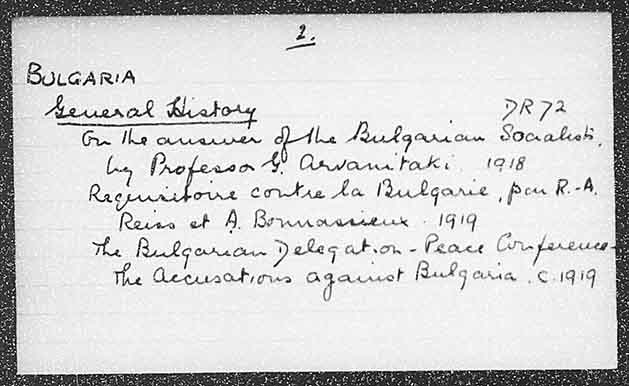 2.
BULGARIA
General History DR72
On the answer of the Bulgarian Socialists,
by Professor G. Arvanitaki. 1918
Requisitoire contre la Bulgarie, par R.-A.
Reiss et A. Bonnassieux. 1919
The Bulgarian Delegation - Peace Conference -
The Accusations against Bulgaria. c.1919